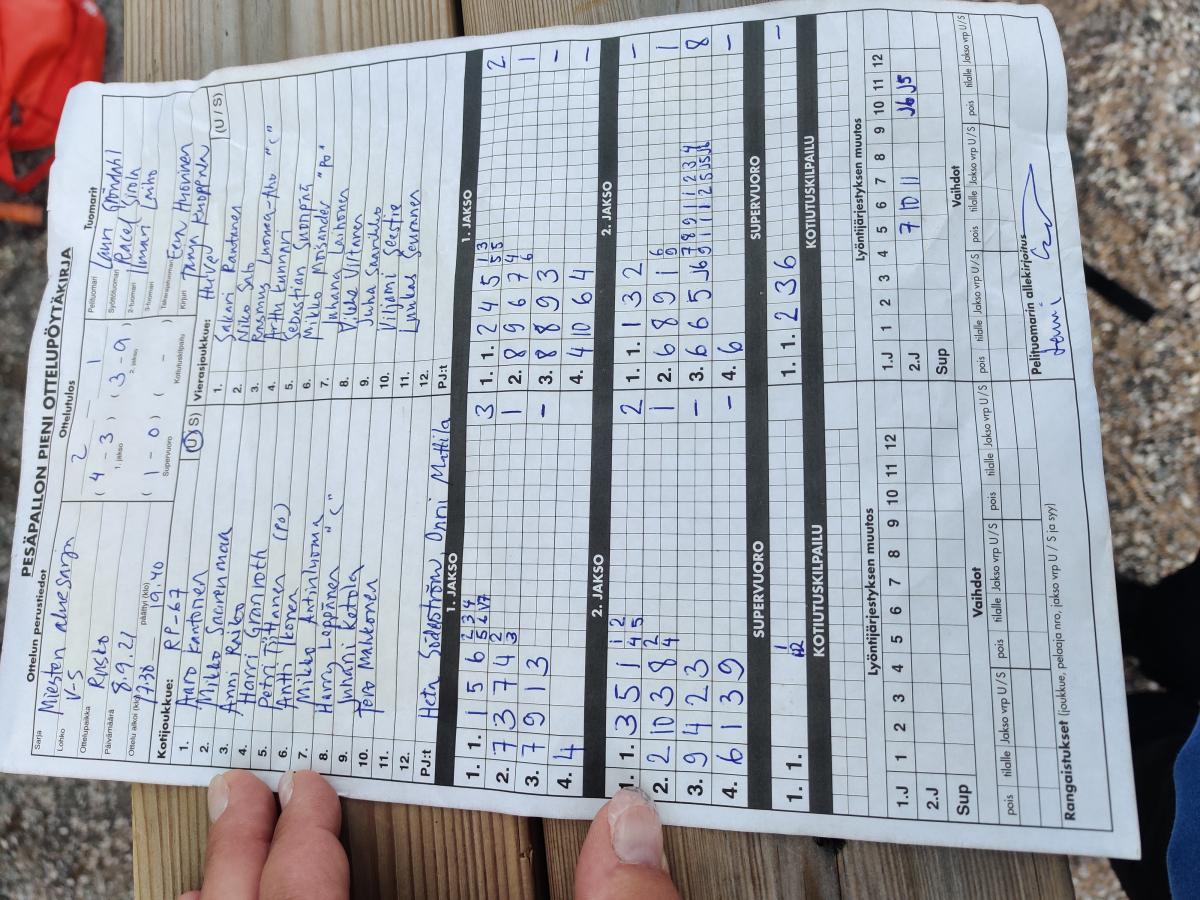 PESÄPALLON PIENI OTTELUPÖYTÄKIRJA
Ottelun perustiedot
Sarja Miesten aluesarja
Lohko V-S
Ottelupaikka Rusko
Päivämäärä 8.9.21
Ottelu alkoi (klo) 17.30 päättyi (klo) 19.40
Ottelutulos
2 — 1
( 4 - 3 ) ( 3 - 9 )
1. jakso 2. jakso
( 1 - 0 ) ( - )
Supervuoro Kotiutuskilpailu
Tuomarit
Pelituomari Lauri
Syöttötuomari Sirola
2-tuomari Ilmari Laiho
3-tuomari
Takarajatuomari Eero Huovinen
Kirjuri Tanja Knoppala
Kotijoukkue: RP-67 (U/S)
1. Aaro Kantonen
2. Mikko Saarenmaa
3. Anni Raito
4. Harri Granroth
5. Petri (Po)
6. Antti Ikonen
7. Mikko Antinluoma
8. Harry Leppänen "C"
9. Juhani Ketola
10. Tero Mahkonen
11.
12.
PJ:t Heta Söderström, Onni Mattila
Vierasjoukkue: (U/S)
1. Sakari Rautanen
2. Niko Salo
3. Rasmus Luoma-Aho "C"
4. Arttu Kunnari
5. Sebastian
6. Mikko Moisander "Po"
7. Juhana Laihonen
8. Ville Virtanen
9. Juha Saarikko
10. Viljami Seestie
11. Luukas Seuranen
12.
PJ:t
1. JAKSO 1. JAKSO
1. 1. 1 5 6 2 3 4 5 6 7 3
2. 7 3 7 4 2 3 1
3. 7 9 1 3 -
4. 4
1. 1. 2 4 5 1 3 5 5 2
2. 8 9 6 7 4 6 1
3. 8 8 9 3 -
4. 4 10 6 4 -
2. JAKSO 2. JAKSO
1. 1. 3 5 1 1 2 4 5 2
2. 2 10 3 8 2 4 1
3. 9 4 2 3 -
4. 6 1 3 9 -
1. 1. 1 3 2 -
2. 6 8 9 1 6 9 1
3. 6 6 5 8
4. 6 -
SUPERVUORO SUPERVUORO
1. 1. 1
1. 1. 2 3 6 -
KOTIUTUSKILPAILU KOTIUTUSKILPAILU
Lyöntijärjestyksen muutos
1 2 3 4 5 6 7 8 9 10 11 12
1.J
2.J
Sup
Lyöntijärjestyksen muutos
1 2 3 4 5 6 7 8 9 10 11 12
1.J 7 10 11 J6 J5
2.J
Sup
Vaihdot Vaihdot
pois tilalle Jakso vrp U/S pois tilalle Jakso vrp U/S pois tilalle Jakso vrp U/S
pois tilalle Jakso vrp U/S pois tilalle Jakso vrp U/S
Rangaistukset (joukkue, pelaaja nro, jakso vrp U / S ja syy)
Pelituomarin allekirjoitus